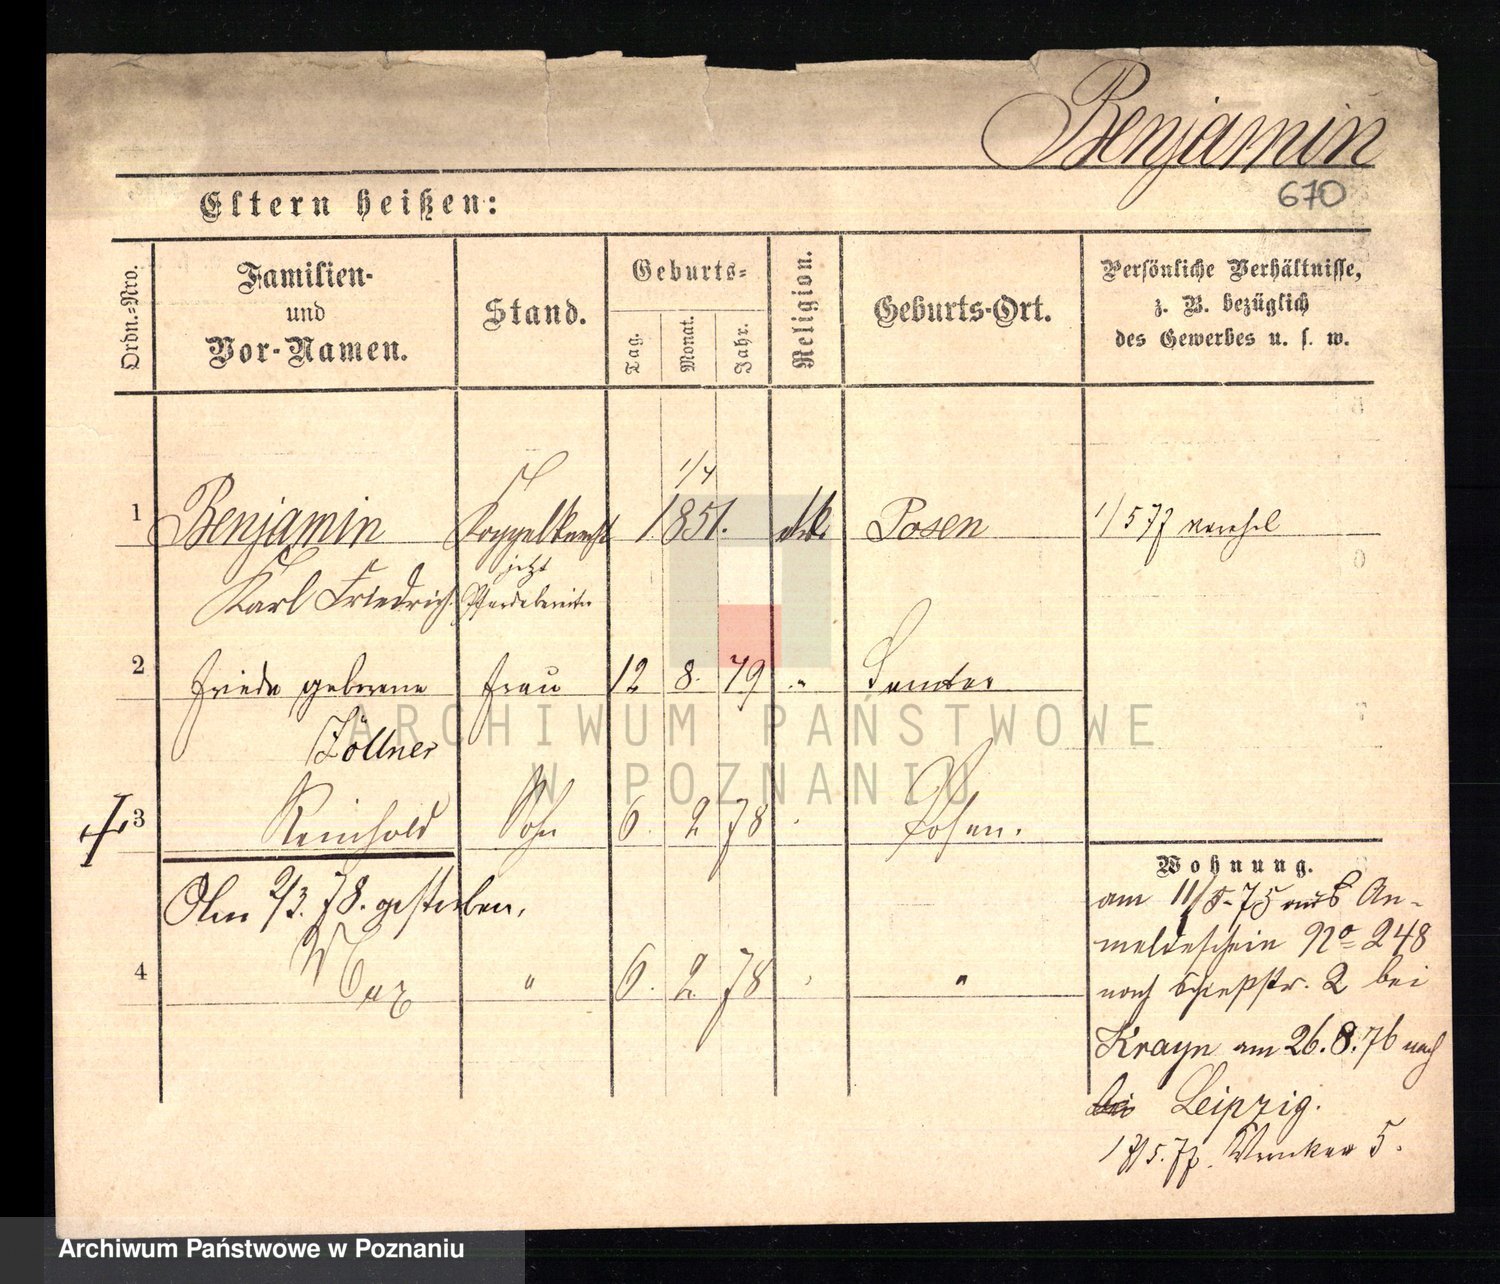 Benjamin
670
Eltern heißen:
Ordn.-Nro.
Familien-
und
Vor-Namen.
Stand.
Geburts-
Tag.
Monat.
Jahr.
Religion.
Geburts-Ort.
Persönliche Verhältnisse,
z. B. bezüglich
des Gewerbes u. s. w.
1/4
1 Benjamin Koppelknecht 1851. Posen 1/5 77
jetzt
Karl Friedrich Pferdebereiter
2 geborene Frau 12 8. 79 " Samter
Zöllner
3 Reinhold Sohn 6. 2 78 Posen.
Am 2/3. 78. gestorben.
4 Max " 6. 2. 78 "
Wohnung.
am 11/5-75 aus An-
meldeschein No 248
nach Schießstr. 2 bei
Krayn am 26.8.76 nach
bei Leipzig.
5.77. 5.
ARCHIWUM PAŃSTWOWE
W POZNANIU
Archiwum Państwowe w Poznaniu